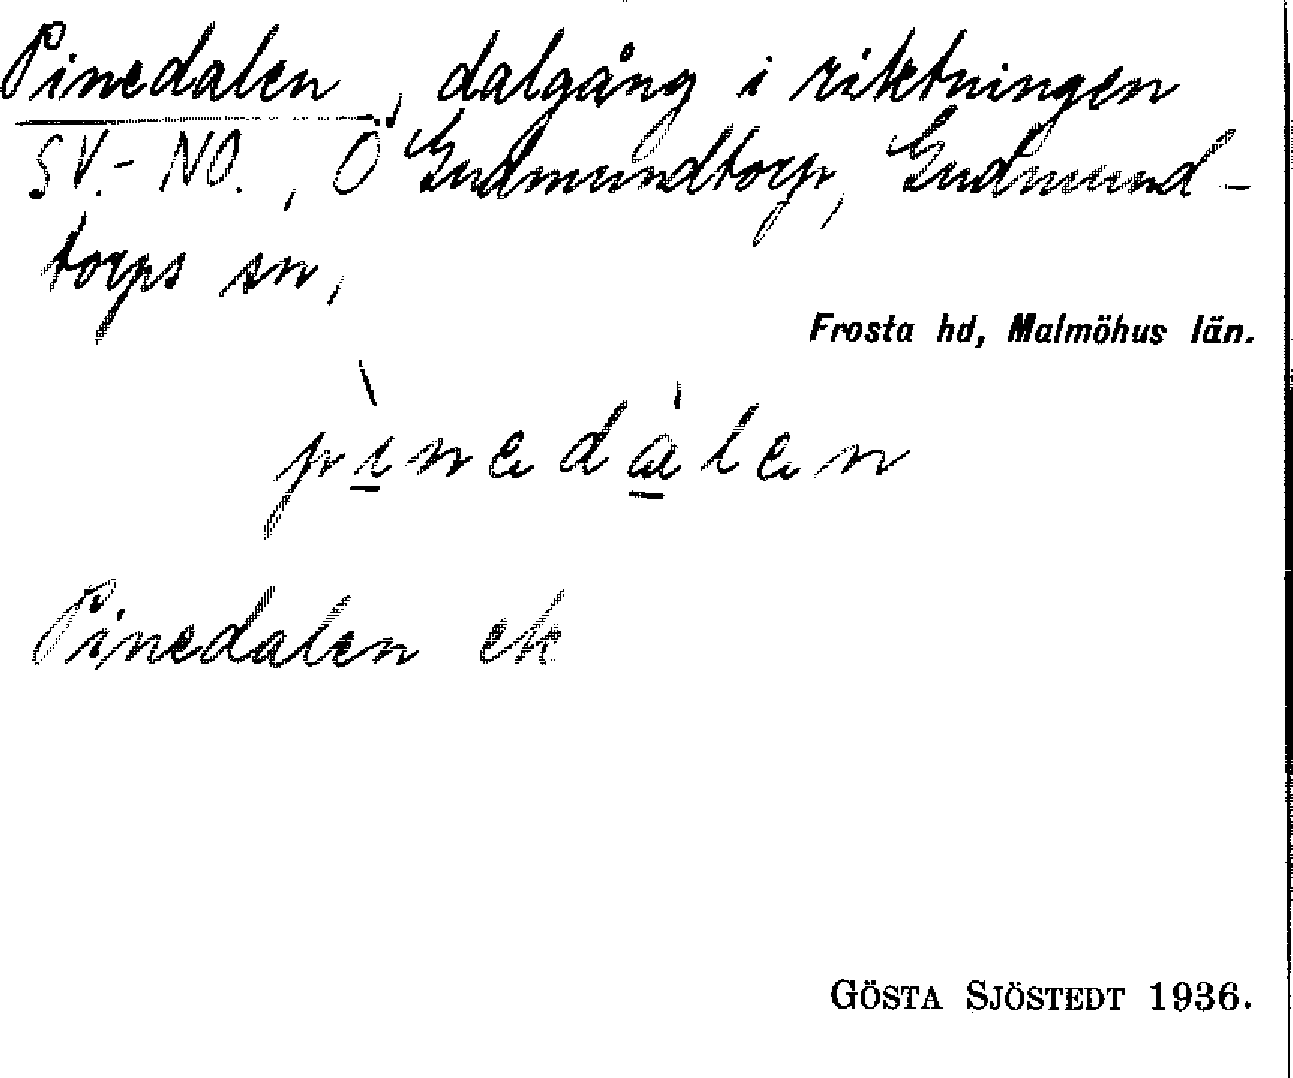 Pinedalen, dalgång i riktningen
SV.- NO., Ö Gudmundtorp, Gudmund-
torps sn,
Frosta hd, Malmöhus län.
pìnedálen
Pinedalen ek
GÖSTA SJÖSTEDT 1936.